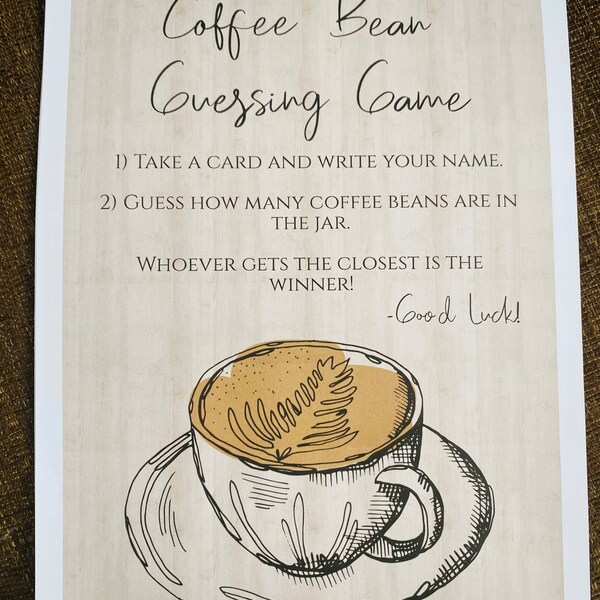 Coffee Bean
Guessing Game
1) Take a card and write your name.
2) Guess how many coffee beans are in
the jar.
Whoever gets the closest is the
winner!
-Good Luck!